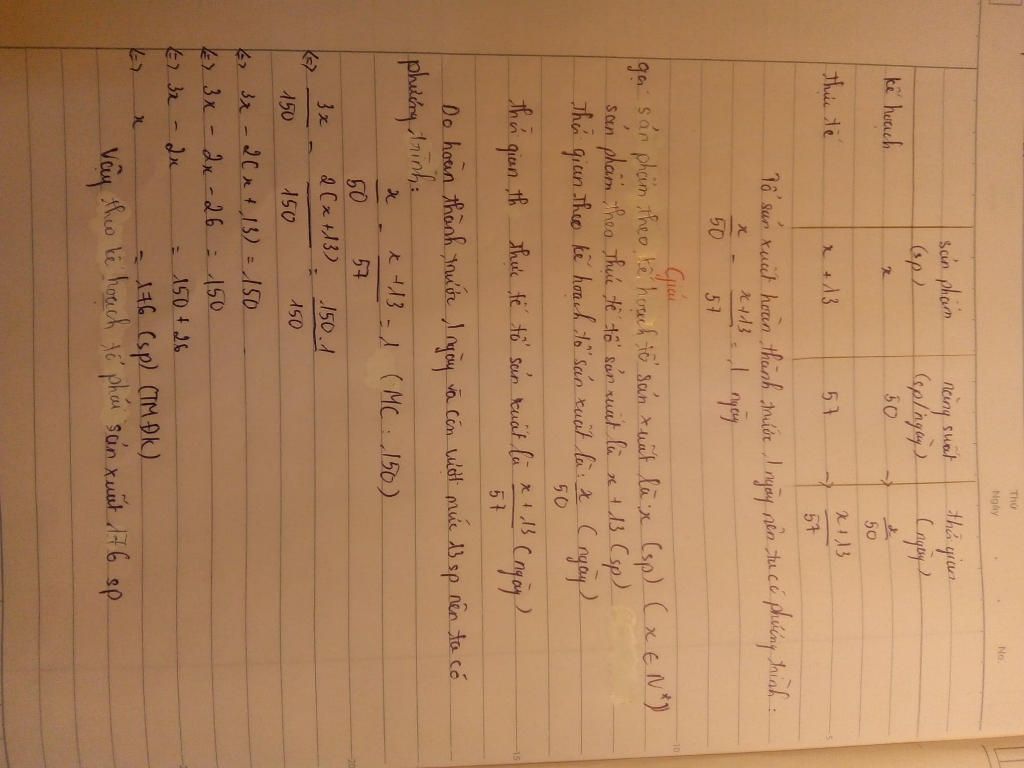 Thứ
Ngày
No.
sản phẩm năng suất thời gian
(sp) (sp/ngày) (ngày)
kế hoạch x 50 → x/50
thực tế x + 13 57 → x+13/57
Tổ sản xuất hoàn thành trước 1 ngày nên ta có phương trình:
x/50 - x+13/57 = 1 ngày
Giải
gọi sản phẩm theo kế hoạch tổ sản xuất là: x (sp) ( x ∈ N*)
sản phẩm theo thực tế tổ sản xuất là x + 13 (sp)
Thời gian theo kế hoạch tổ sản xuất là: x/50 (ngày)
thời gian th thực tế tổ sản xuất là x + 13/57 (ngày)
Do hoàn thành trước 1 ngày và còn vượt mức 13 sp nên ta có
phương trình:
x/50 - x+13/57 = 1 (MC: 150)
(=) 3x/150 - 2(x+13)/150 = 150.1/150
(=) 3x - 2(x + 13) = 150
(=) 3x - 2x - 26 = 150
(=) 3x - 2x = 150 + 26
(=) x = 176 (sp) (TMĐK)
Vậy theo kế hoạch tổ phải sản xuất 176 sp
5
10
15
20